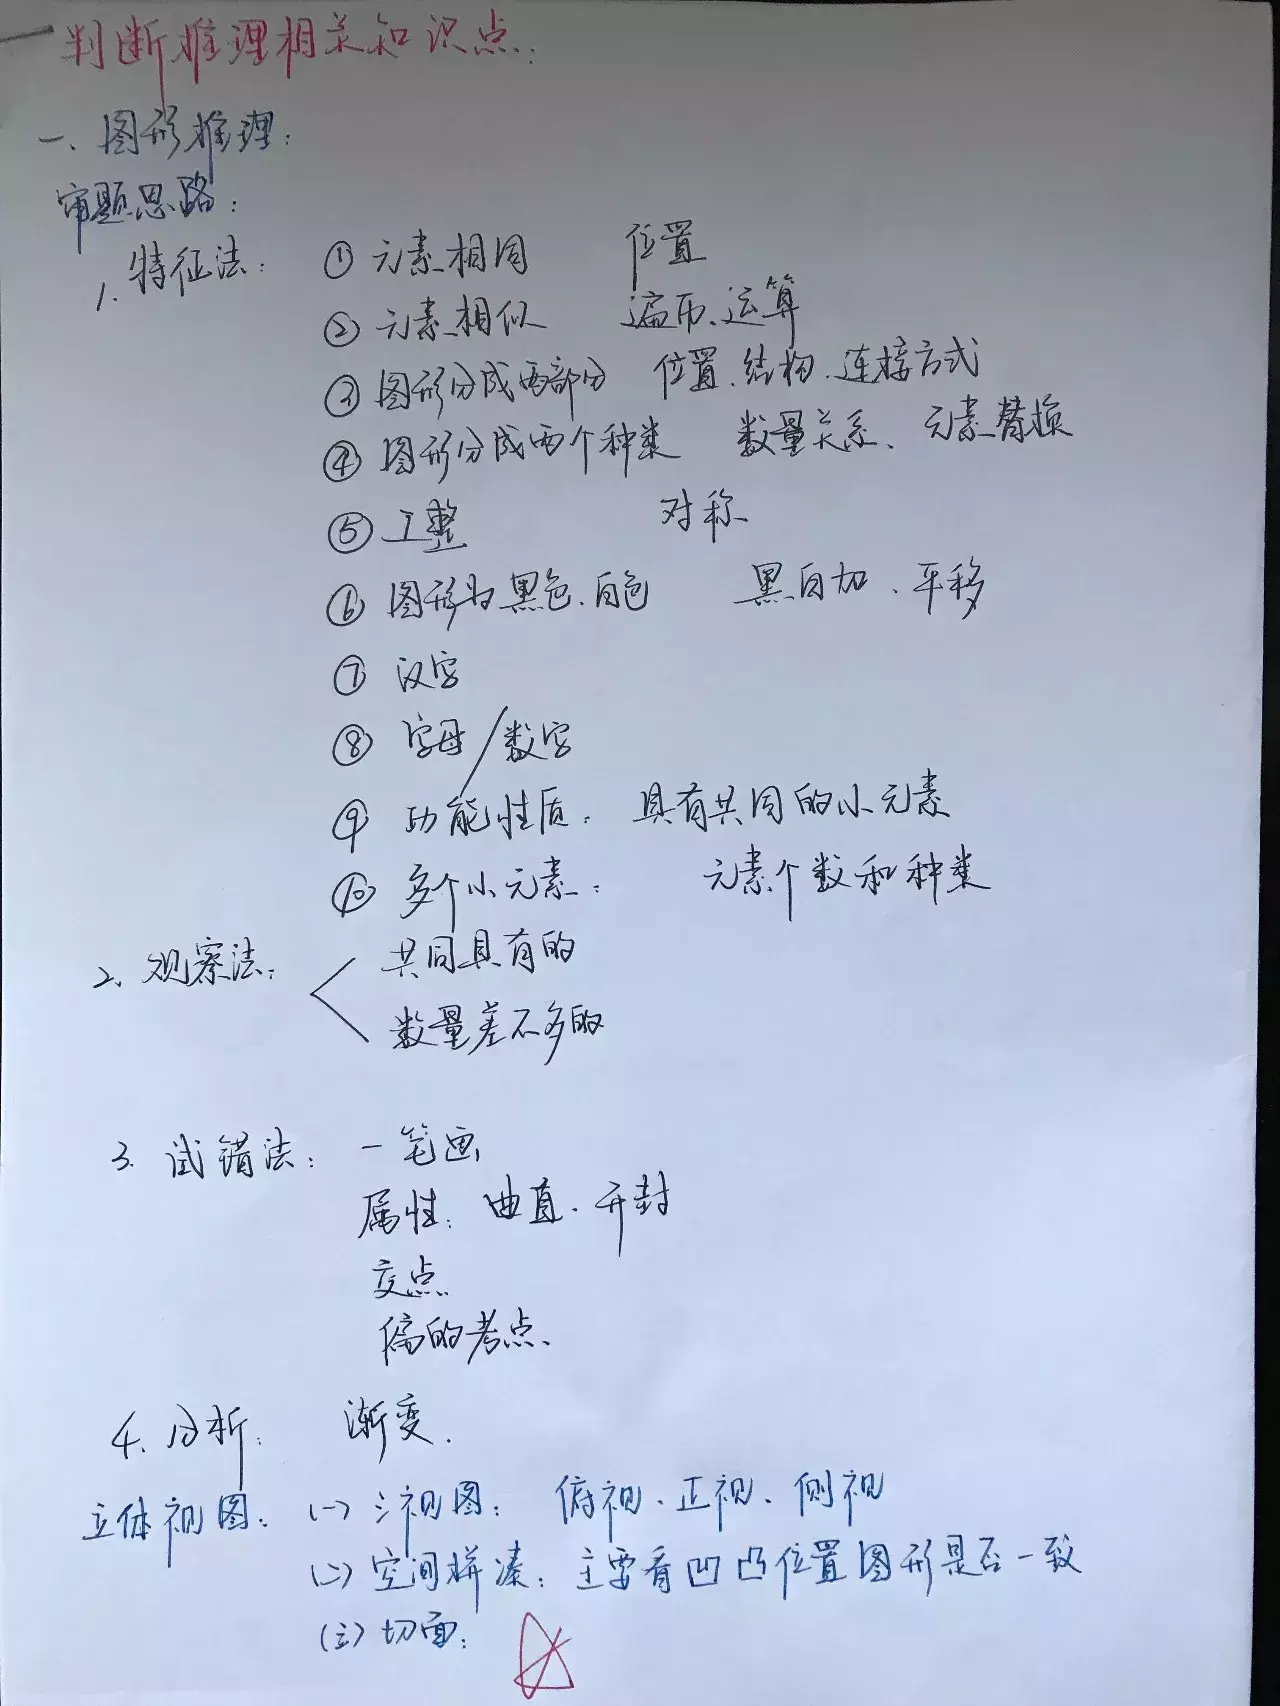 判断推理相关知识点:
一、图形推理:
审题思路:
1. 特征法: ① 元素相同 位置
② 元素相似 遍历、运算
③ 图形分成两部分 位置、结构、连接方式
④ 图形分成两个种类 数量关系、元素替换
⑤ 工整 对称
⑥ 图形为黑色、白色 黑白加、平移
⑦ 汉字
⑧ 字母/数字
⑨ 功能性质: 具有共同的小元素
⑩ 多个小元素: 元素个数和种类
2、观察法: 共同具有的
数量差不多的
3. 试错法: 一笔画
属性: 曲直、开封
交点
偏的考点、
4. 分析: 渐变.
立体视图: (一) 三视图: 俯视、正视、侧视
(二) 空间拼凑: 主要看凹凸位置图形是否一致
(三) 切面: